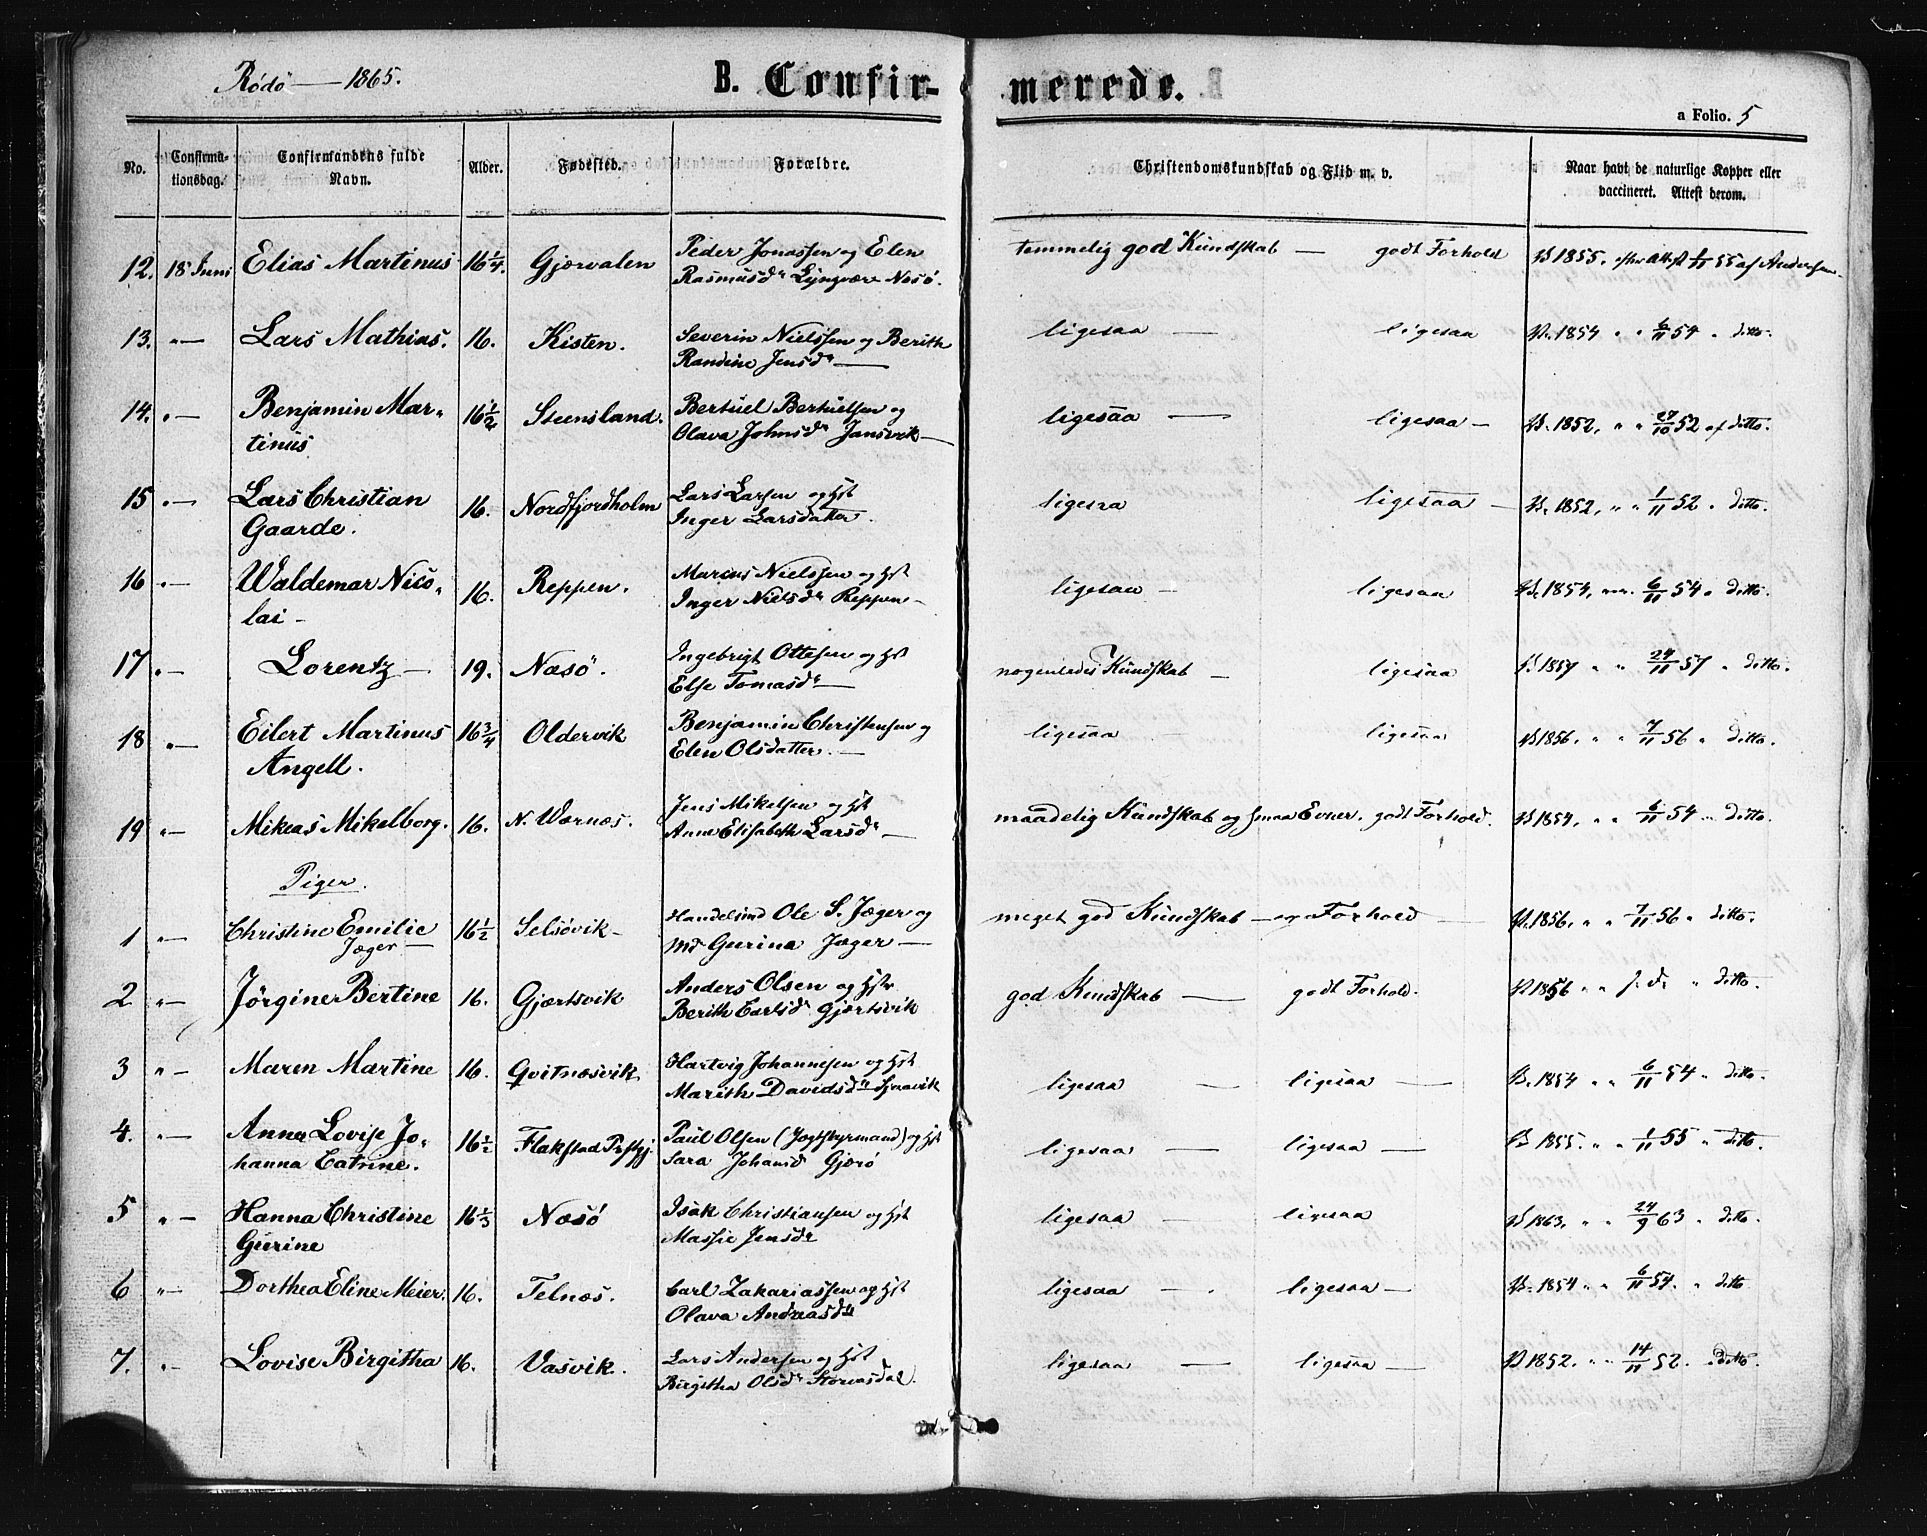 Rödö — 1865.
B. Confir- merede.
a Folio. 5
No. Confirmationsdag. Confirmandens fulde Navn. Alder. Fødested. Forældre. Christendomskundskab og Flid m. v. Naar havt de naturlige Kopper eller vaccineret. Attest derom.
12. 18 Juni Elias Martinus 16 1/4. Gjærvalen Peder Jonassen og Elen temmelig god Kundskab — godt Forhold V 1855. efter Attest 1/11 55 af Andersen.
Rasmusdr Lyngvær Næsö.
13. " — Lars Mathias. 16. Kisten. Severin Nielssen og Berith ligesaa — ligesaa V. 1854 " " 6/11 54 " ditto.
Randine Jensdr —
14. " — Benjamin Mar- 16 1/2 Steensland. Bertuel Bertuelsen og ligesaa — ligesaa — V. 1852, " " 27/10 52 af ditto.
tinus Olava Johnsdr Jansvik —
15 " — Lars Christian 16. Nordfjordholm Lars Larsen og Hst ligesaa ligesaa — V. 1852, " " 1/11 52 " ditto.
Gaarde. Inger Larsdatter.
16 " — Waldemar Nico- 16. Reppen. Marcus Nielssen og Hst ligesaa — ligesaa V. 1854, " " 6/11 54 " ditto.
lai — Inger Nielsdr Reppen —
17 " — Lorentz — 19. Næsö. Ingebrigt Ottesen og Hst nogenledes Kundskab — ligesaa V 1857 " " 24/11 57 " ditto.
Else Tomasdr —
18 " — Eilert Martinus 16 3/4 Oldervik Benjamin Christensen og ligesaa — ligesaa V 1856, " " 7/11 56 " ditto.
Angell. Elen Olsdatter. —
19 " — Mikeas Mikelborg. 16. N. Værnæs. Jens Mikelsen og Hst maadelig Kundskab og smaa Evner. godt Forhold. V 1854, " " 6/11 54 " ditto.
Anne Elisabeth Larsdr —
Piger.
1 " — Christine Emilie 16 1/2 Selsövik — Handelsmd Ole S. Jæger og meget god Kundskab — og Forhold — V. 1856, " " 7/11 56 " ditto.
Jæger — Md Gurina Jæger —
2 " — Jörginer Bertine 16. Gjærtsvik Anders Olsen og Hstr god Kundskab — godt Forhold. V 1856 " " s. d. " ditto.
Berith Carlsdr Gjærtsvik
3 " — Maren Martine 16. Qvitnæsvik Hartvig Johannesen og Hst ligesaa — ligesaa — V. 1854 " " 6/11 54 " ditto.
Marith Davidsdr
4. " — Anna Lovise Jo- 16 1/2 Flakstad Præstgj. Paul Olsen og Hst ligesaa — ligesaa — V 1855. " " 1/11 55 " ditto.
hanna Catrine. Sara Johansd Gjærö
5 " — Hanna Christine 16 1/3 Næsö Isak Christiansen og Hst ligesaa — ligesaa V 1863, " " 24/9 63 " ditto.
Gurine Massie Jensdr
6 " — Dorthea Eline Meier. 16. Telnæs. Carl Zakariassen og Hst ligesaa — ligesaa — V. 1854 " " 6/11 54. " ditto
Olava Andreasdr
7. " — Lovise Birgitha 16. Vasvik. Lars Andersen og Hst ligesaa — ligesaa — V 1852. " " 14/11 52. " ditto.
Birgitha Olsdr Storvasdal.